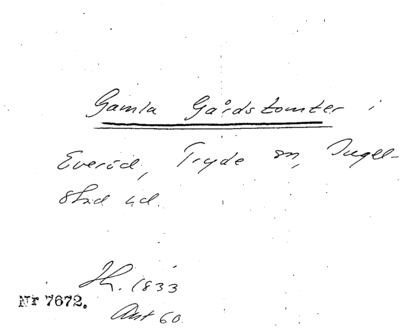 Gamla Gårdstomter i
Everöd, Tryde sn, Ingel-
stad hd.
H. 1833
Nr 7672.
Ant 60